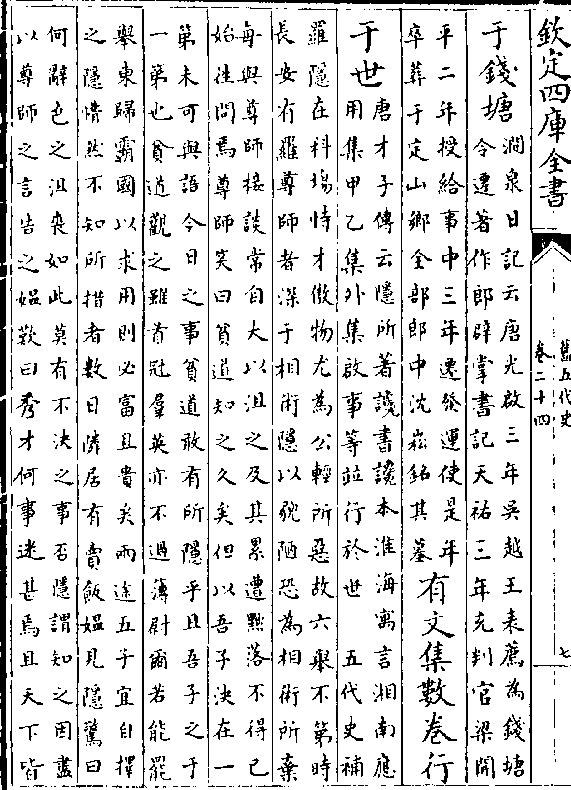 欽定四庫全書
舊五代史
卷二十四
七
于錢塘
澗泉日記云唐光啟三年吳越王表薦為錢塘
令遷著作郎辟掌書記天祐三年充判官梁開
平二年授給事中三年遷發運使是年
卒葬于定山鄉金部郎中沈崧銘其墓
有文集數卷行
于世
唐才子傳云隱所著讒書讒本淮海寓言湘南應
用集甲乙集外集啟事等並行於世 五代史補
羅隱在科場恃才傲物尤為公輕所惡故六舉不第時
長安有羅尊師者深于相術隱以貌陋恐為相術所棄
每與尊師接談常自大以沮之及其累遭黜落不得已
始往問焉尊師笑曰貧道知之久矣但以吾子決在一
第未可與語今日之事貧道敢有所隱乎且吾子之于
一第也貧道觀之雖首冠羣英亦不過簿尉爾若能罷
舉東歸霸國以求用則必富且貴矣兩途五子宜自擇
之隱懵然不知所措者數日隣居有賣飯媼見隱驚曰
何辭色之沮喪如此莫有不決之事否隱謂知之因盡
以尊師之言告之媼歎曰秀才何事迷甚焉且天下皆